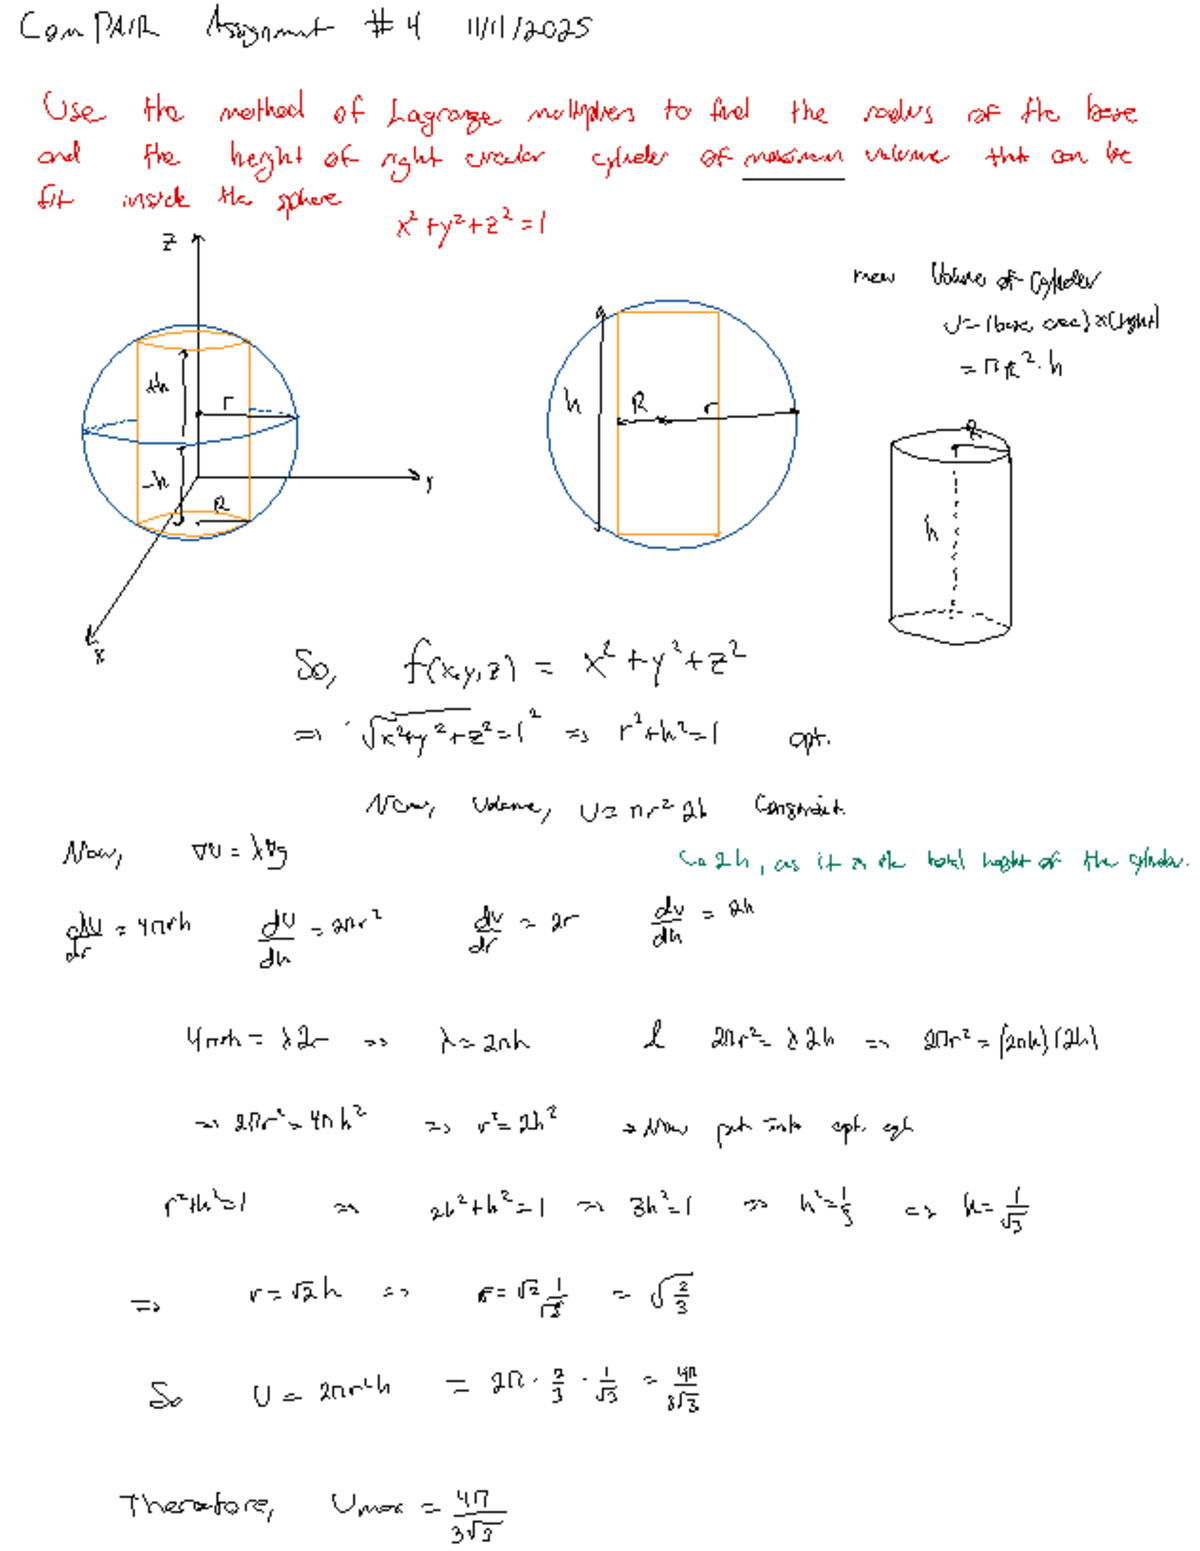 ComPAIR Assignment #4 11/11/2025
Use the method of Lagrange multipliers to find the radius of the base
and the height of right circular cylinder of maximum volume that can be
fit inside the sphere
x²+y²+z²=1
z
+h
r
-h
R
y
x
h
R
r
Volume of Cylinder
V=(base area)×(hght)
=πR²·h
R
h
So, f(x,y,z) = x²+y²+z²
⇒ √x²+y²+z²=1² ⇒ r²+h²=1 opt.
Now, Volume, V=πr²2h Constraint.
Now, ∇V=λ∇g
↳ 2h, as it is the total height of the cylinder.
dV/dr = 4πrh dV/dh = 2πr² dv/dr = 2r dv/dh = 2h
4πrh = λ2r ⇒ λ=2πh & 2πr²=λ2h ⇒ 2πr²=(2πh)(2h)
⇒ 2πr²=4πh² ⇒ r²=2h² → Now put into opt. eqn
r²+h²=1 ⇒ 2h²+h²=1 ⇒ 3h²=1 ⇒ h²=1/3 ⇒ h=1/√3
⇒ r=√2h ⇒ r=√2 1/√3 = √2/3
So V = 2πr²h = 2π · 2/3 · 1/√3 = 4π/3√3
Therefore, Vmax = 4π/3√3